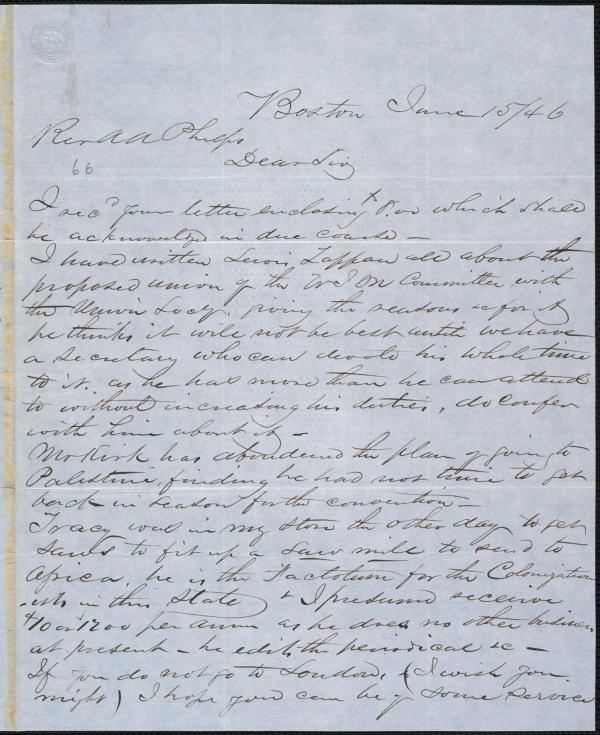 Boston June 15/46
Rev A A Phelps
66
Dear Sir
I recd your letter enclosing $8.00 which shall
be acknowledged in due course –
I have written Lewis Tappan all about the
proposed union of the W I M Committee with
the Union Socy, giving the reasons for it
he thinks it will not be best until we have
a secretary who can devote his whole time
to it. as he has more than he can attend
to without increasing his duties, do confer
with him about it –
Mr Kirk has abandoned the plan of going to
Palestine, finding he had not time to get
back in season for the convention –
Tracy was in my store the other day to get
saws to fit up a saw mill to send to
Africa, he is the Factotum for the Colonization
in this State & I presume receive
10 or 1200 per annum as he does no other business
at present – he edits the periodical &c –
If you do not go to London, (I wish you
might) I hope you can be of some service